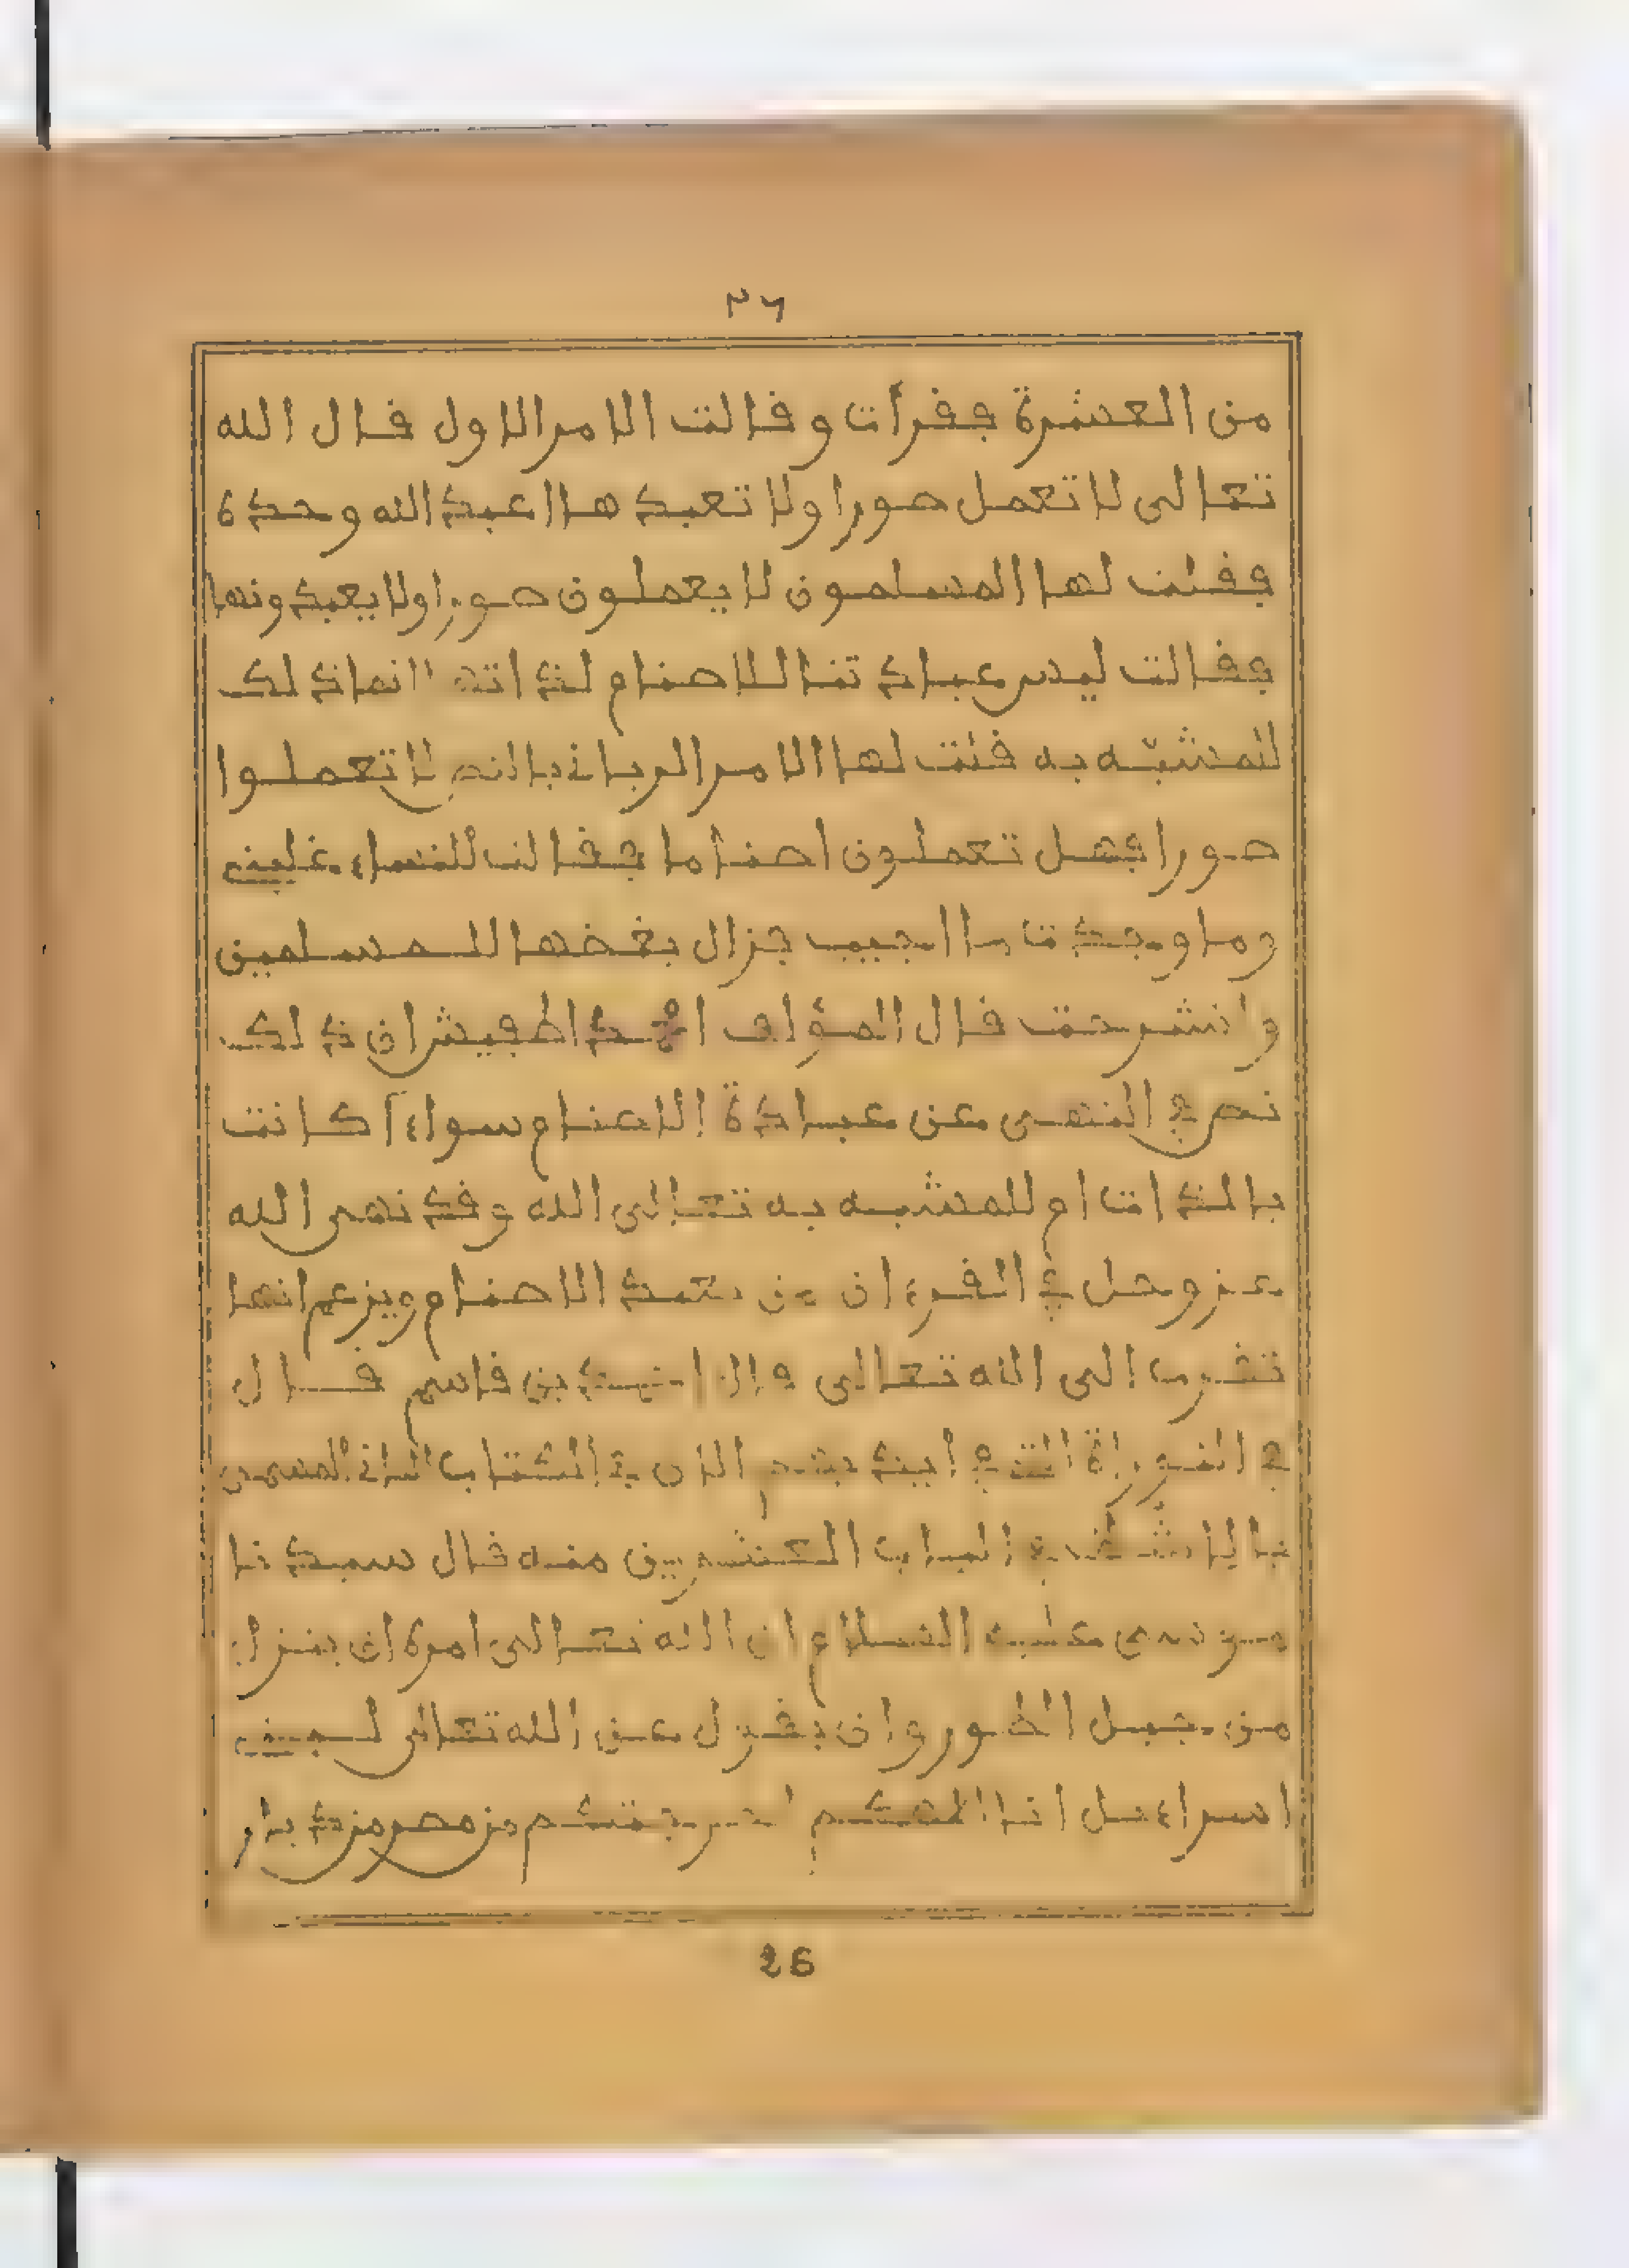 ٢٦
من العشرة فقرأت وقالت الامر الاول قال الله
تعالى لا تعمل صورا ولا تعبدها اعبد الله وحده
فقلت لها المسلمون لا يعملون صورا ولا يعبدونها
فقالت ليس عبادتنا للاصنام لذاته انما ذلك
للمشبّه به قلت لها الامر الرباني بالنص لا تعملوا
صورا فهل تعملون اصناما فقالت للنساء غلبني
وما وجدت ما اجيب فزال بغضها للمسلمين
وانشرحت قال المؤلف امحمد اطفيش ان ذلك
نص في النهى عن عبادة الاصنام سواء أكانت
بالذات ام للمشبه به تعالى الله وقد نهى الله
عز وجل في القرءان من يعبد الاصنام ويزعم انها
تقرب الى الله تعالى قال بن قاسم قال
في التوراة التي الان في الكتاب الثاني المسمى
الباب العشرين منه قال سيدنا
موسى عليه السلام ان الله تعالى امره ان ينزل
من جبل الطور وان يقول عن الله تعالى لبني
اسراءيل انا الهكم اخرجتكم من مصر من ديار
26